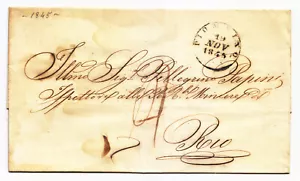 - 1845 -
PIOMBINO
19
NOV
1845
Illmo Sigr Pellegrino Papini
Ispettore alle RR. Miniere di
Rio